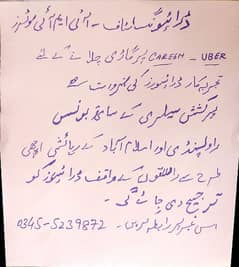 ڈرائیونگ سٹاف - آئی ایم آئی موٹرز
UBER - CAREEM پر گاڑی چلانے کے لئے
تجربہ کار ڈرائیورز کی ضرورت ہے
پرکشش سیلری کے ساتھ بونس
راولپنڈی اور اسلام آباد کے رہائشی اچھی
طرح سے راستوں کے واقف ڈرائیورز کو
ترجیح دی جائے گی -
0345-5239872 اس نمبر پر رابطہ کریں -